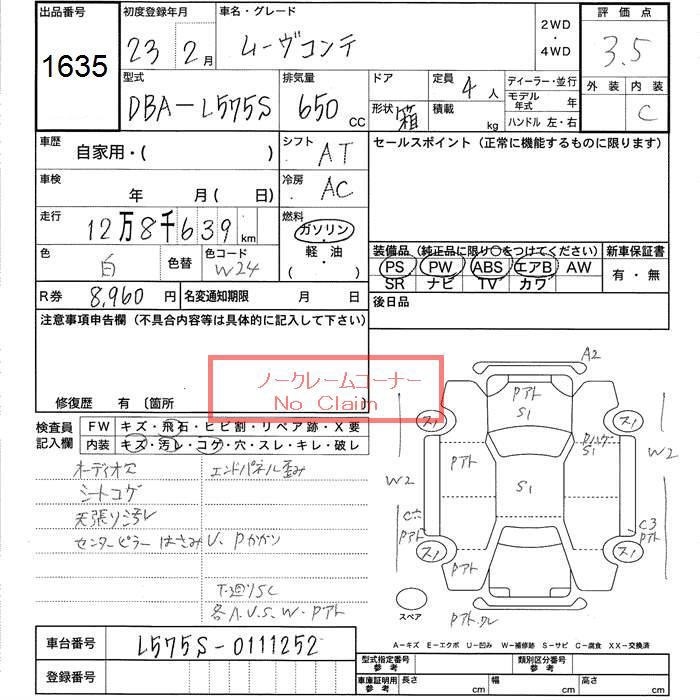 出品番号 初度登録年月 車名・グレード 2WD ・ 4WD 評価点
1635 23 2月 ムーヴコンテ 3.5
型式 排気量 ドア 定員 4人 ディーラー・並行 外装 内装
DBA-L575S 650 CC 形状 箱 積載 kg モデル年式 年 C
ハンドル 左・右
車歴 自家用・( ) シフト AT セールスポイント (正常に機能するものに限ります)
車検 年 月 ( 日) 冷房 AC
走行 12万8千639km 燃料 ガソリン・軽油・( )
色 白 色替 色コード W24
装備品 (純正品に限り○をつけてください) 新車保証書
PS PW ABS エアB AW 有・無
SR ナビ TV カワ
R券 8,960円 名変通知期限 月 日 後日品
注意事項申告欄 (不具合内容等は具体的に記入して下さい)
ノークレームコーナー
No Claim
修復歴 有 〔箇所
検査員記入欄 FW キズ・飛石・ヒビ割・リペア跡・X要
内装 キズ・汚レ・コゲ・穴・スレ・キレ・破レ
オーディオ穴 エンドパネル歪み
シートコゲ
天張り汚レ
センターピラーはさみU、Pカガリ
下廻りSC
各A.U.S.W.Pアト
A2
Pアト
S1
ス1 ス1
Pハゲ
S1
W2 W2
Pアト
S1
C穴 C3
Pアト Pアト
ス1 ス1
Pアト Pアト
スペア
Pアト.ワレ
A-キズ E-エクボ U-凹み W-補修跡 S-サビ C-腐食 XX-交換済
車台番号 L575S-0111252
型式指定番号 参考 類別区分番号 参考
登録番号
車庫証明用 参考 長さ cm 幅 cm 高さ cm